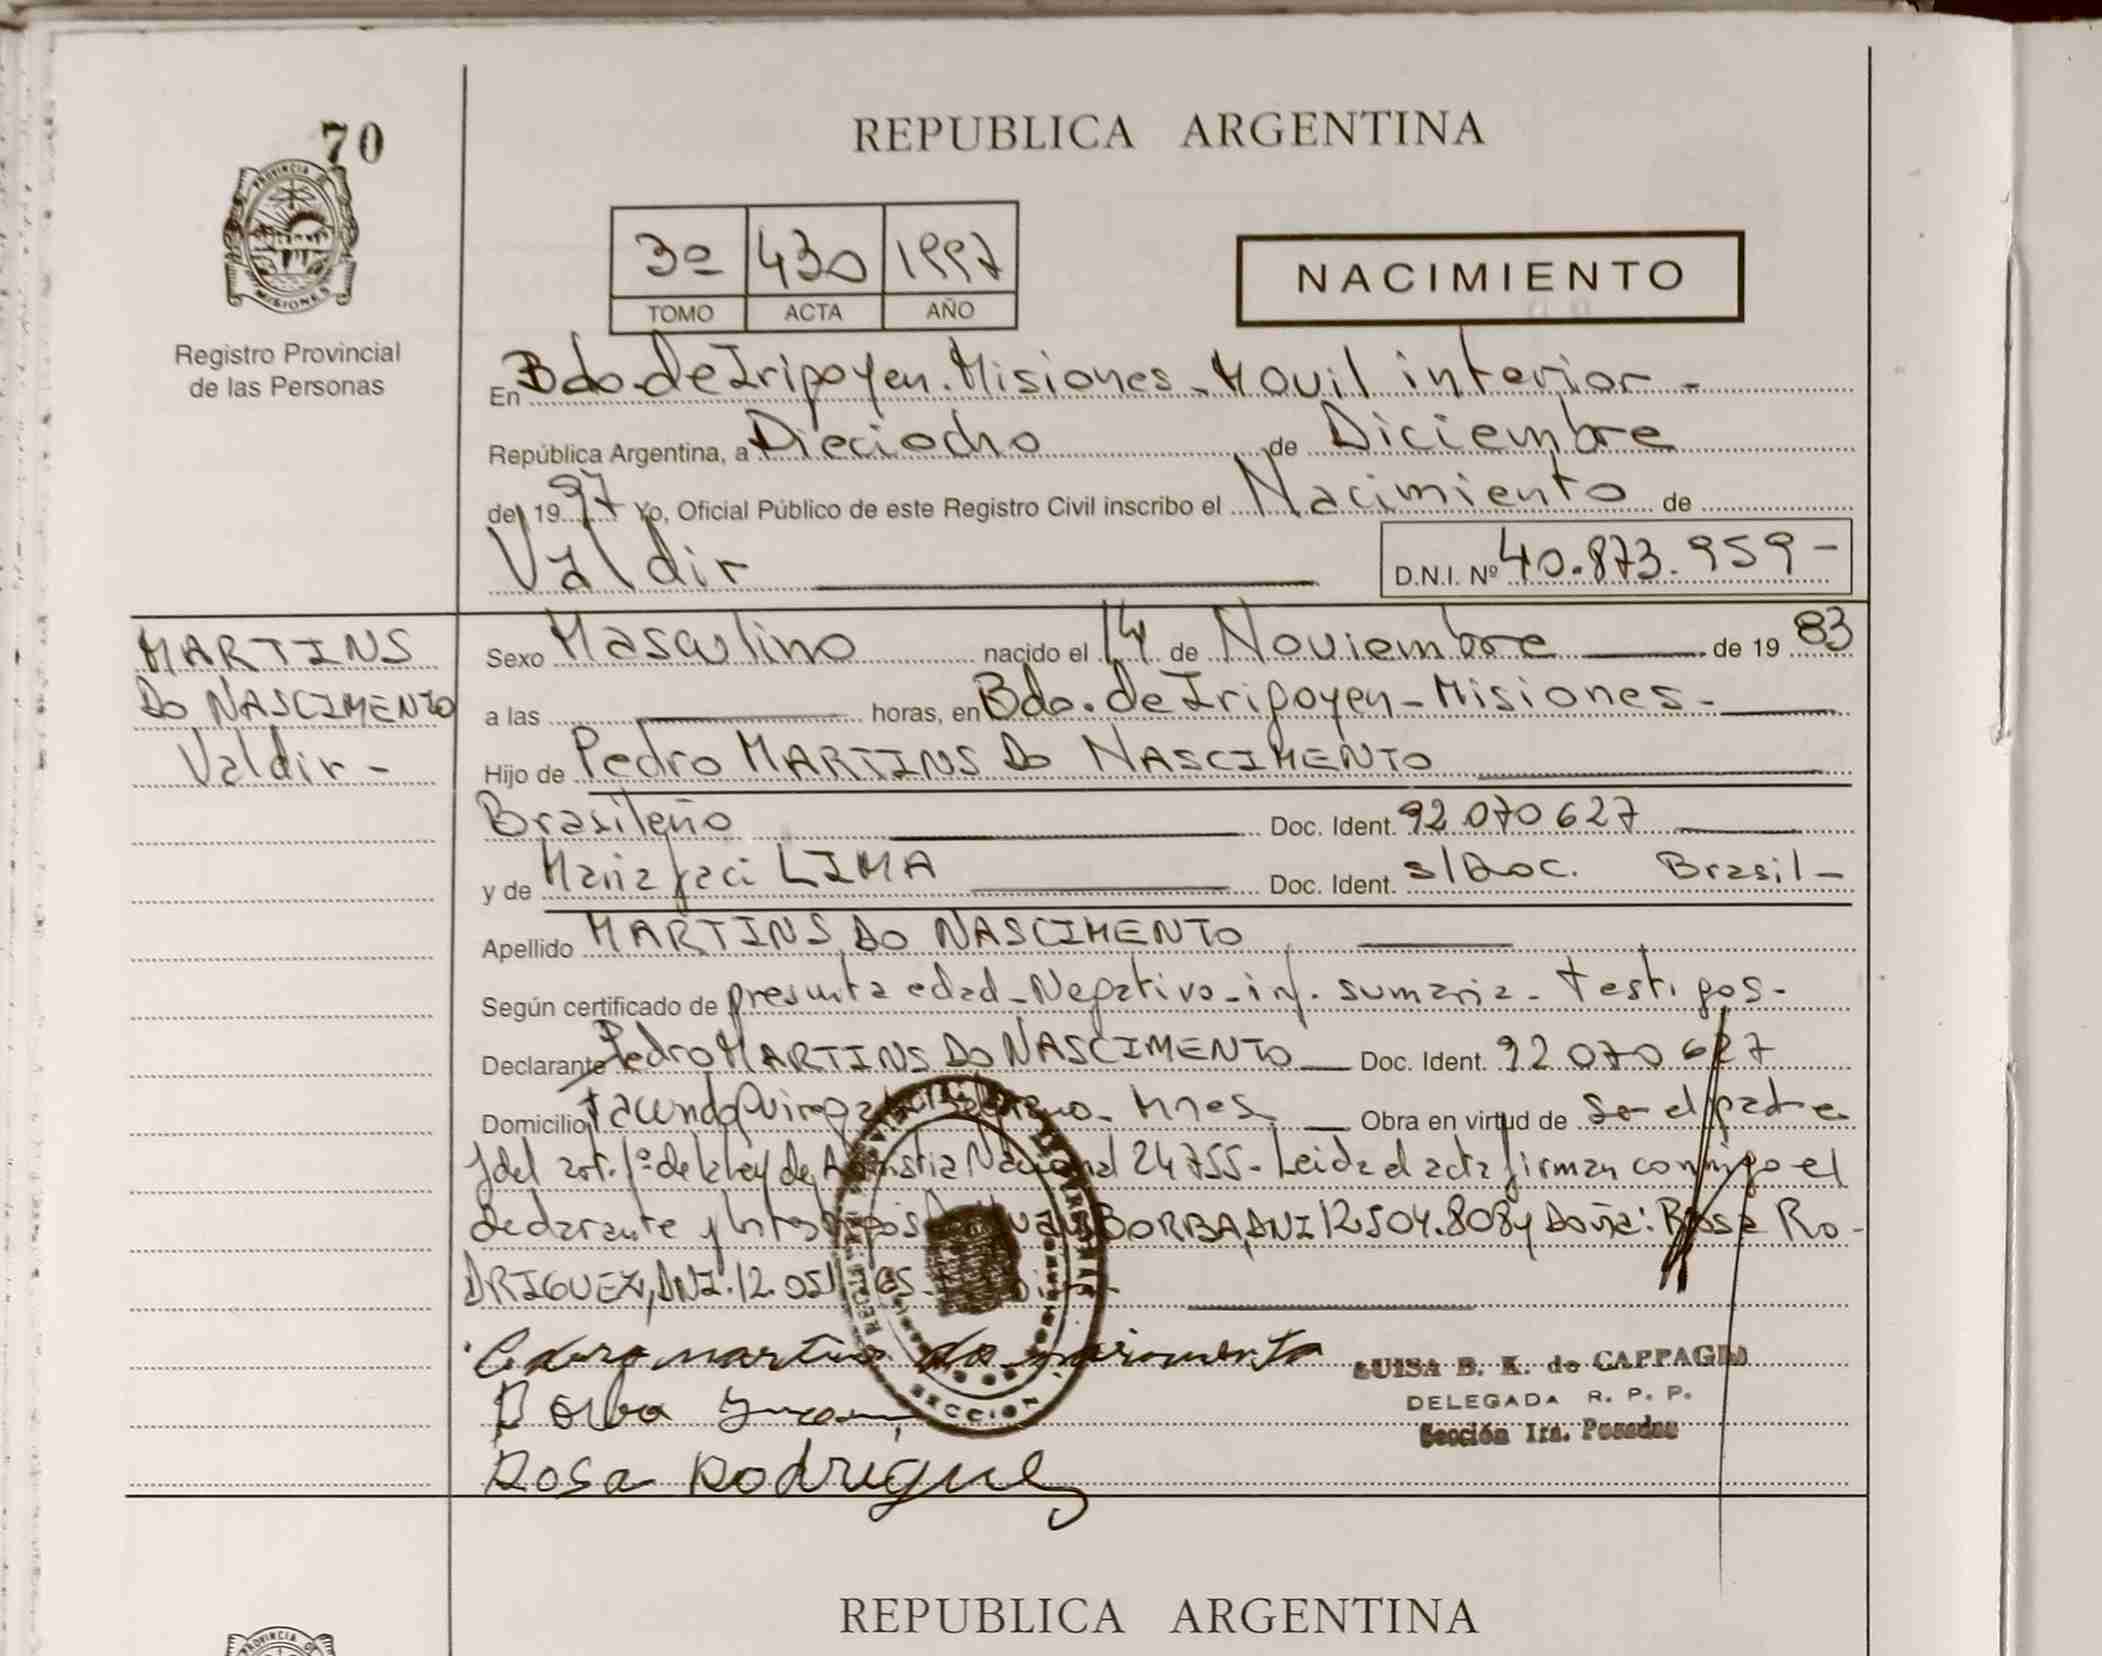 70
PROVINCIA DE
MISIONES
Registro Provincial
de las Personas
REPUBLICA ARGENTINA
3º 430 1997
TOMO ACTA AÑO
NACIMIENTO
En Bdo. de Irigoyen. Misiones - Movil interior -
República Argentina, a Dieciocho de Diciembre
de 19 97 Yo, Oficial Público de este Registro Civil inscribo el Nacimiento de
Valdir
D.N.I. Nº 40.873.959 -
MARTINS
DO NASCIMENTO
Valdir -
Sexo Masculino nacido el 14 de Noviembre de 19 83
a las horas, en Bdo. de Irigoyen - Misiones -
Hijo de Pedro MARTINS DO NASCIMENTO
Brasileño Doc. Ident. 92 070 627
y de Maria Jaci LIMA Doc. Ident. s/Doc. Brasil -
Apellido MARTINS DO NASCIMENTO
Según certificado de presunta edad - Negativo - inf. sumaria - testigos -
Declarante Pedro MARTINS DO NASCIMENTO Doc. Ident. 92 070 627
Domicilio Facundo Quiroga Mnes. Obra en virtud de el padre
y del art. 1º de la Ley de Amnistia Nacional 24755 - Leida el acta firman conmigo el
declarante y los testigos BORBA, DNI 12.504.808 y Doña: Rosa Ro -
DRIGUEZ, DNI. 12.051
martins do
Borba
Rosa Rodriguez
SECCION
LUISA B. K. de CAPPAGLI
DELEGADA R. P. P.
Sección 1ra. Posadas
REPUBLICA ARGENTINA
PROVINCIA DE